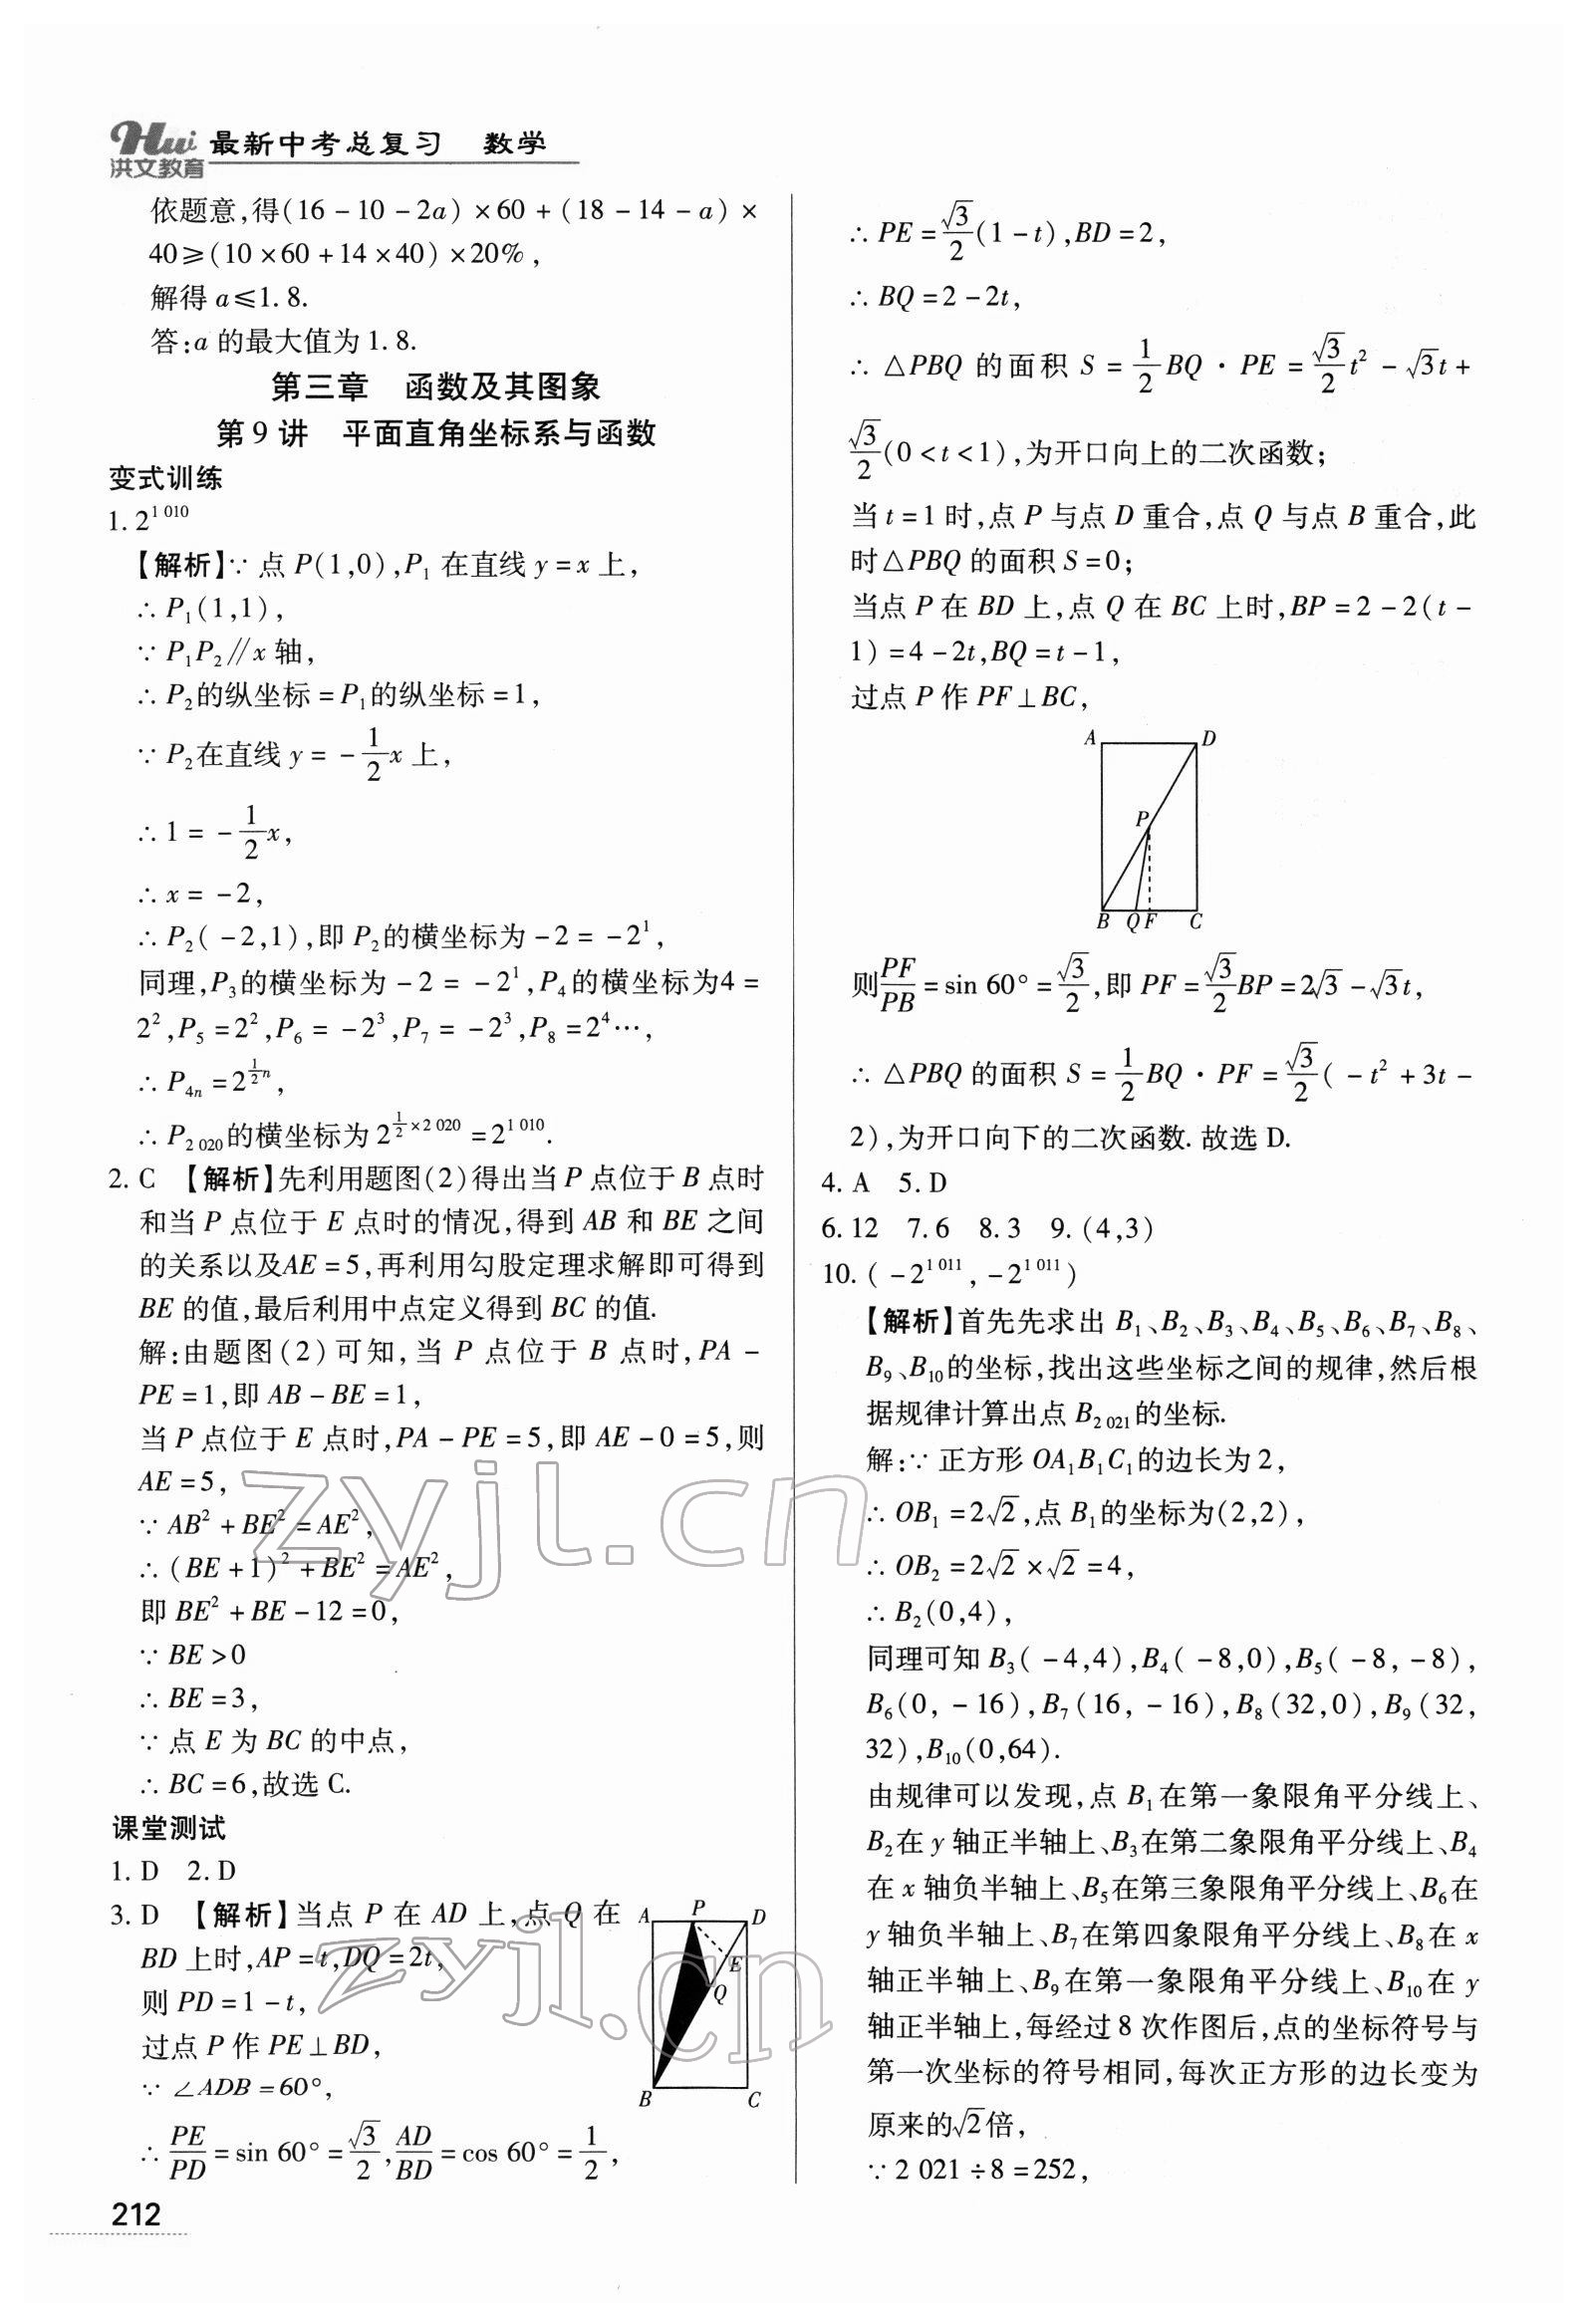 Hui 洪文教育 最新中考总复习 数学
依题意,得(16-10-2a)×60+(18-14-a)×
40≥(10×60+14×40)×20%,
解得 a≤1.8.
答:a 的最大值为 1.8.
第三章 函数及其图象
第 9 讲 平面直角坐标系与函数
变式训练
1. 2^{1 010}
【解析】∵ 点 P(1,0),P₁ 在直线 y=x 上,
∴ P₁(1,1),
∵ P₁P₂∥x 轴,
∴ P₂的纵坐标=P₁的纵坐标=1,
∵ P₂在直线 y=-\frac{1}{2}x 上,
∴ 1=-\frac{1}{2}x,
∴ x=-2,
∴ P₂(-2,1),即 P₂的横坐标为-2=-2¹,
同理,P₃的横坐标为-2=-2¹,P₄的横坐标为4=
2²,P₅=2²,P₆=-2³,P₇=-2³,P₈=2⁴…,
∴ P_{4n}=2^{\frac{1}{2}n},
∴ P_{2 020}的横坐标为 2^{\frac{1}{2}×2 020}=2^{1 010}.
2. C 【解析】先利用题图(2)得出当 P 点位于 B 点时
和当 P 点位于 E 点时的情况,得到 AB 和 BE 之间
的关系以及AE=5,再利用勾股定理求解即可得到
BE 的值,最后利用中点定义得到 BC 的值.
解:由题图(2)可知,当 P 点位于 B 点时,PA-
PE=1,即 AB-BE=1,
当 P 点位于 E 点时,PA-PE=5,即 AE-0=5,则
AE=5,
∵ AB²+BE²=AE²,
∴ (BE+1)²+BE²=AE²,
即 BE²+BE-12=0,
∵ BE>0
∴ BE=3,
∵ 点 E 为 BC 的中点,
∴ BC=6,故选 C.
课堂测试
1. D 2. D
3. D 【解析】当点 P 在 AD 上,点 Q 在
BD 上时,AP=t,DQ=2t,
则 PD=1-t,
过点 P 作 PE⊥BD,
∵ ∠ADB=60°,
∴ \frac{PE}{PD}=sin 60°=\frac{√3}{2},\frac{AD}{BD}=cos 60°=\frac{1}{2},
A P D
E
Q
B C
212
∴ PE=\frac{√3}{2}(1-t),BD=2,
∴ BQ=2-2t,
∴ △PBQ 的面积 S=\frac{1}{2}BQ·PE=\frac{√3}{2}t²-√3t+
\frac{√3}{2}(0<t<1),为开口向上的二次函数;
当 t=1 时,点 P 与点 D 重合,点 Q 与点 B 重合,此
时△PBQ 的面积 S=0;
当点 P 在 BD 上,点 Q 在 BC 上时,BP=2-2(t-
1)=4-2t,BQ=t-1,
过点 P 作 PF⊥BC,
A D
P
B Q F C
则\frac{PF}{PB}=sin 60°=\frac{√3}{2},即 PF=\frac{√3}{2}BP=2√3-√3t,
∴ △PBQ 的面积 S=\frac{1}{2}BQ·PF=\frac{√3}{2}(-t²+3t-
2),为开口向下的二次函数.故选 D.
4. A 5. D
6. 12 7. 6 8. 3 9. (4,3)
10. (-2^{1 011},-2^{1 011})
【解析】首先先求出 B₁、B₂、B₃、B₄、B₅、B₆、B₇、B₈、
B₉、B₁₀的坐标,找出这些坐标之间的规律,然后根
据规律计算出点 B_{2 021}的坐标.
解:∵ 正方形 OA₁B₁C₁的边长为 2,
∴ OB₁=2√2,点 B₁的坐标为(2,2),
∴ OB₂=2√2×√2=4,
∴ B₂(0,4),
同理可知 B₃(-4,4),B₄(-8,0),B₅(-8,-8),
B₆(0,-16),B₇(16,-16),B₈(32,0),B₉(32,
32),B₁₀(0,64).
由规律可以发现,点 B₁在第一象限角平分线上、
B₂在 y 轴正半轴上、B₃在第二象限角平分线上、B₄
在 x 轴负半轴上、B₅在第三象限角平分线上、B₆在
y 轴负半轴上、B₇在第四象限角平分线上、B₈在 x
轴正半轴上、B₉在第一象限角平分线上、B₁₀在 y
轴正半轴上,每经过 8 次作图后,点的坐标符号与
第一次坐标的符号相同,每次正方形的边长变为
原来的√2倍,
∵ 2 021÷8=252,
zyjl.cn
zyjl.cn